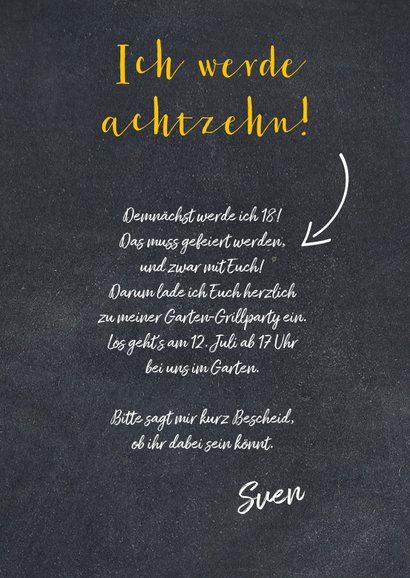 Ich werde
achtzehn!
Demnächst werde ich 18!
Das muss gefeiert werden,
und zwar mit Euch!
Darum lade ich Euch herzlich
zu meiner Garten-Grillparty ein.
Los geht's am 12. Juli ab 17 Uhr
bei uns im Garten.
Bitte sagt mir kurz Bescheid,
ob ihr dabei sein könnt.
Sven